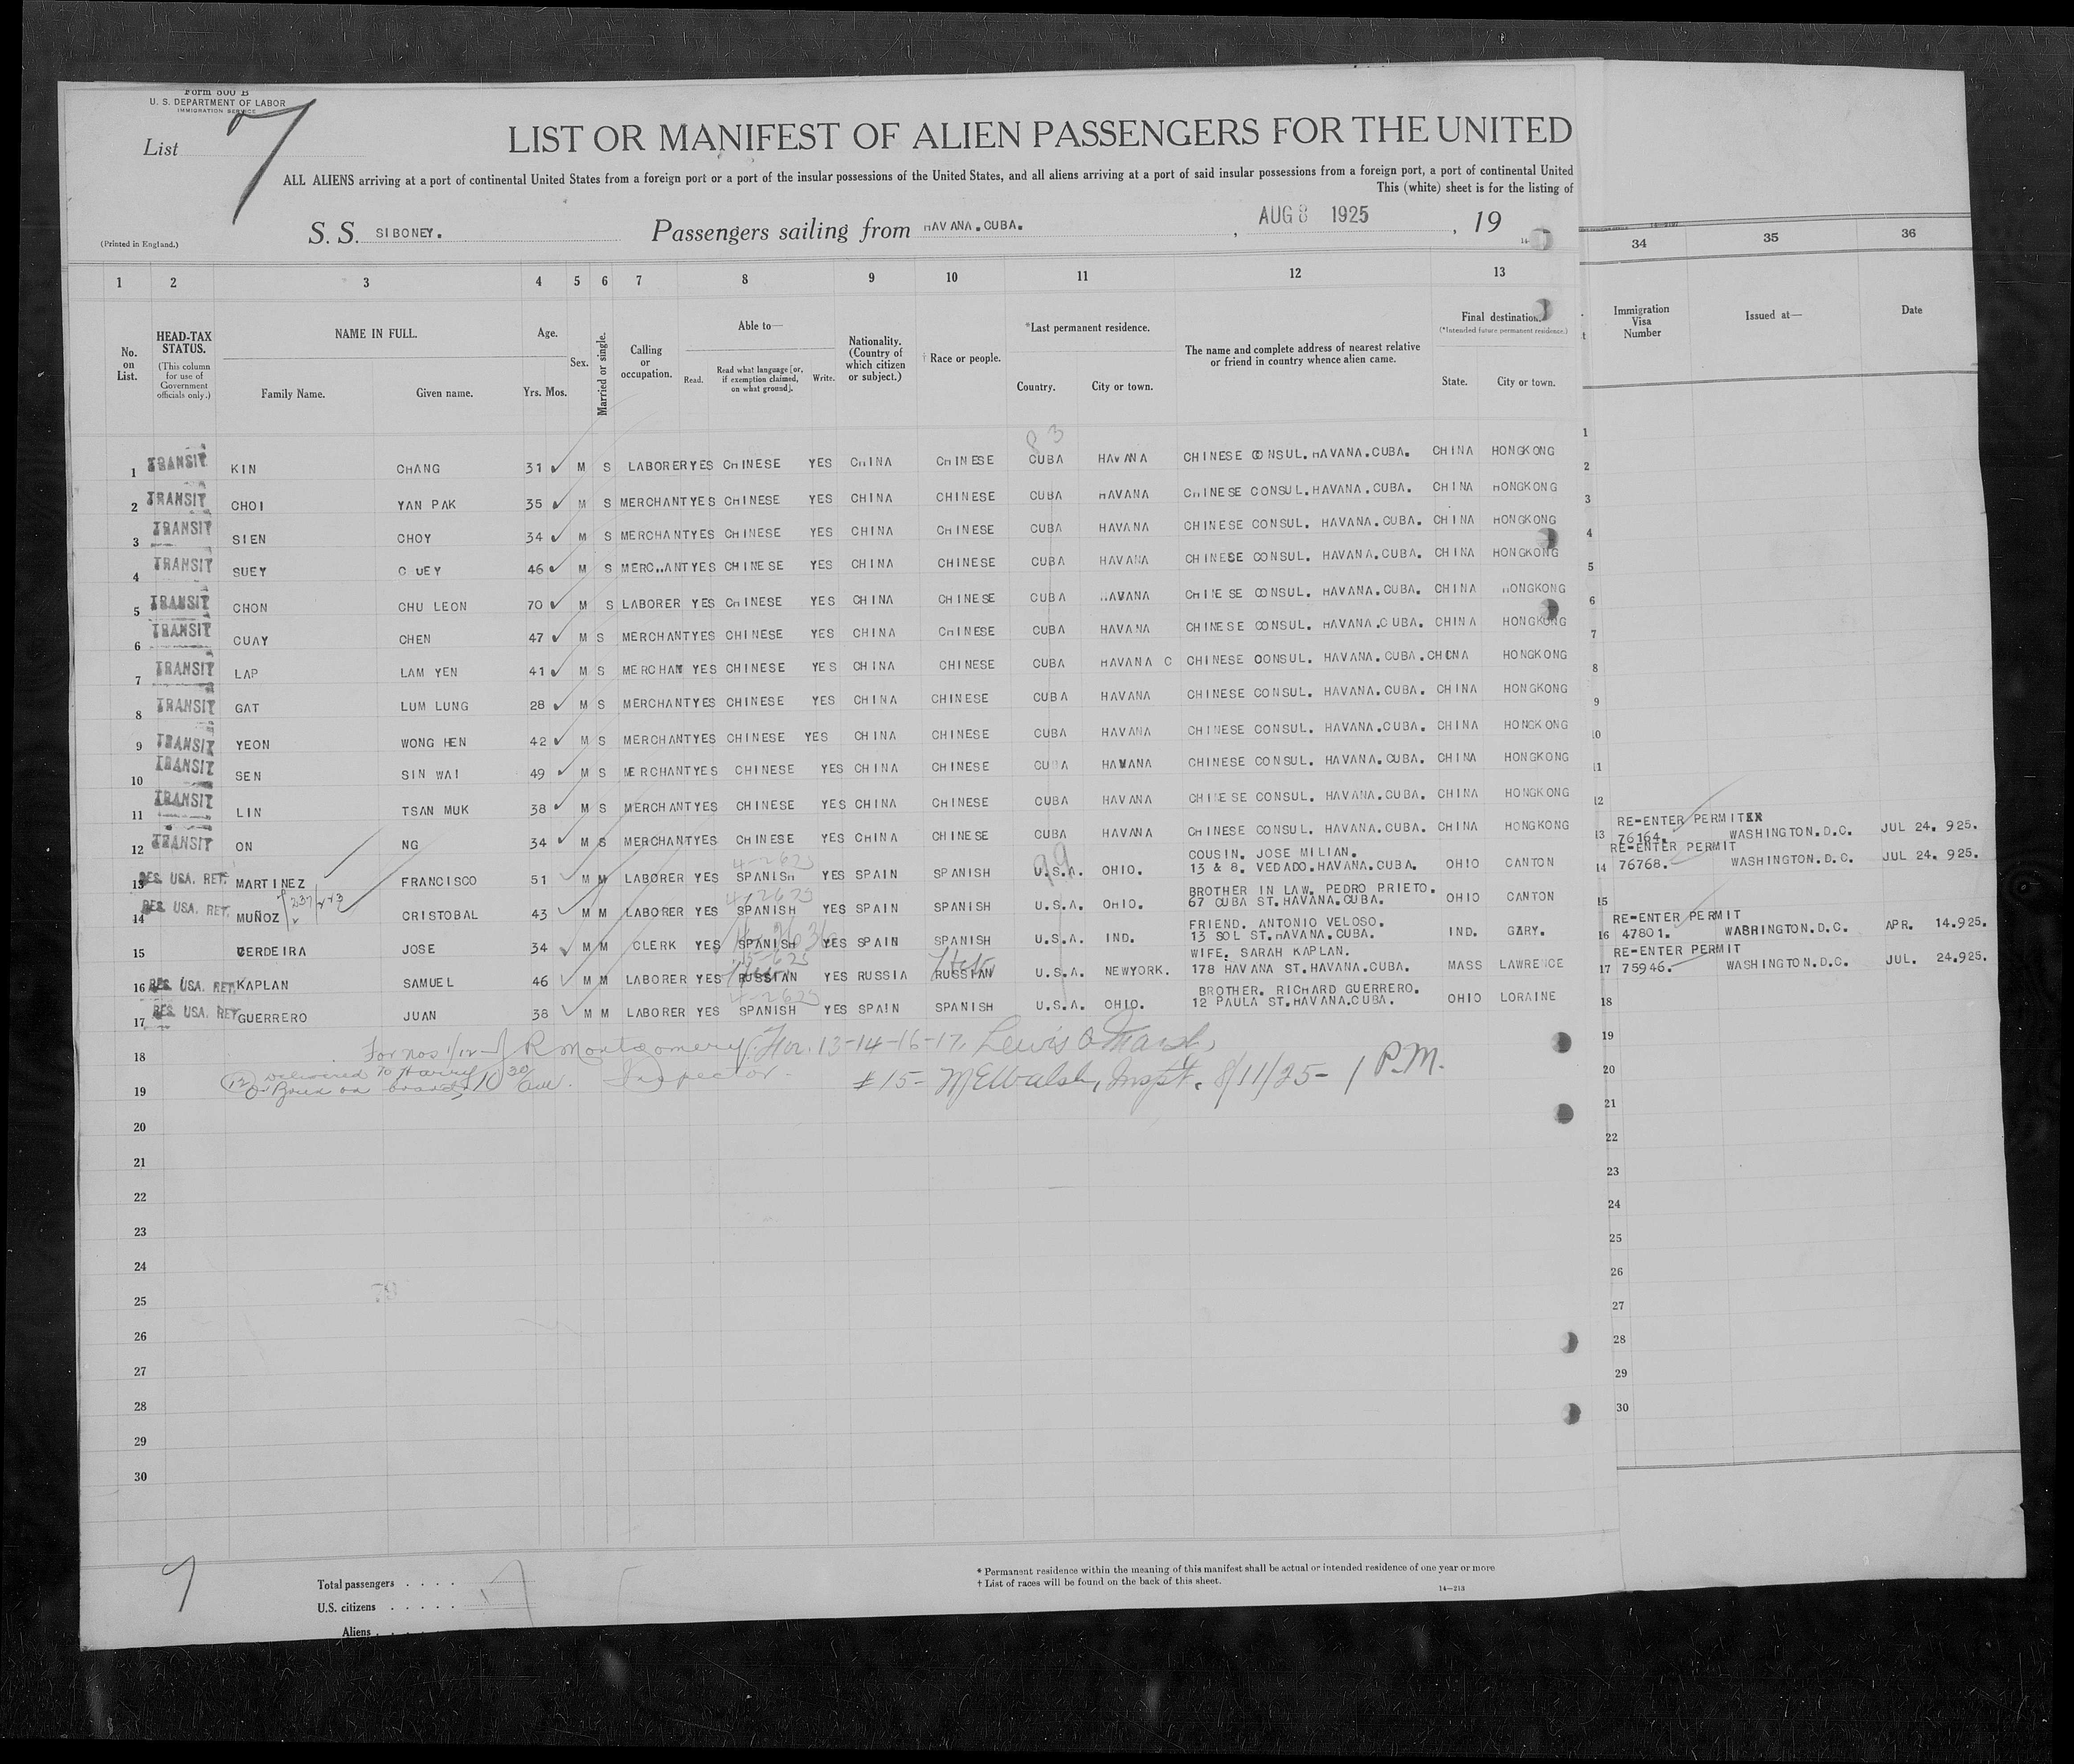 Form 500 B
U. S. DEPARTMENT OF LABOR
IMMIGRATION SERVICE
List 7
LIST OR MANIFEST OF ALIEN PASSENGERS FOR THE UNITED
ALL ALIENS arriving at a port of continental United States from a foreign port or a port of the insular possessions of the United States, and all aliens arriving at a port of said insular possessions from a foreign port, a port of continental United
This (white) sheet is for the listing of
(Printed in England.)
S. S. SIBONEY. Passengers sailing from HAVANA.CUBA. , AUG 8 1925 , 19
1 2 3 4 5 6 7 8 9 10 11 12 13 34 35 36
No. on List.
HEAD-TAX STATUS.
(This column for use of Government officials only.)
NAME IN FULL.
Family Name. Given name.
Age.
Yrs. Mos.
Sex.
Married or single.
Calling or occupation.
Able to—
Read. Read what language [or, if exemption claimed, on what ground]. Write.
Nationality. (Country of which citizen or subject.)
† Race or people.
*Last permanent residence.
Country. City or town.
The name and complete address of nearest relative or friend in country whence alien came.
Final destination.
(*Intended future permanent residence.)
State. City or town.
Immigration Visa Number
Issued at—
Date
83
1 TRANSIT KIN CHANG 31 M S LABORER YES CHINESE YES CHINA CHINESE CUBA HAVANA CHINESE CONSUL. HAVANA.CUBA. CHINA HONGKONG
2 TRANSIT CHOI YAN PAK 35 M S MERCHANT YES CHINESE YES CHINA CHINESE CUBA HAVANA CHINESE CONSUL. HAVANA.CUBA. CHINA HONGKONG
3 TRANSIT SIEN CHOY 34 M S MERCHANT YES CHINESE YES CHINA CHINESE CUBA HAVANA CHINESE CONSUL. HAVANA.CUBA. CHINA HONGKONG
4 TRANSIT SUEY C UEY 46 M S MERCHANT YES CHINESE YES CHINA CHINESE CUBA HAVANA CHINESE CONSUL. HAVANA.CUBA. CHINA HONGKONG
5 TRANSIT CHON CHU LEON 70 M S LABORER YES CHINESE YES CHINA CHINESE CUBA HAVANA CHINESE CONSUL. HAVANA.CUBA. CHINA HONGKONG
6 TRANSIT CUAY CHEN 47 M S MERCHANT YES CHINESE YES CHINA CHINESE CUBA HAVANA CHINESE CONSUL. HAVANA.CUBA. CHINA HONGKONG
7 TRANSIT LAP LAM YEN 41 M S MERCHAN YES CHINESE YES CHINA CHINESE CUBA HAVANA C CHINESE CONSUL. HAVANA.CUBA. CHINA HONGKONG
8 TRANSIT GAT LUM LUNG 28 M S MERCHANT YES CHINESE YES CHINA CHINESE CUBA HAVANA CHINESE CONSUL. HAVANA.CUBA. CHINA HONGKONG
9 TRANSIT YEON WONG HEN 42 M S MERCHANT YES CHINESE YES CHINA CHINESE CUBA HAVANA CHINESE CONSUL. HAVANA.CUBA. CHINA HONGKONG
10 TRANSIT SEN SIN WAI 49 M S MERCHANT YES CHINESE YES CHINA CHINESE CUBA HAVANA CHINESE CONSUL. HAVANA.CUBA. CHINA HONGKONG
11 TRANSIT LIN TSAN MUK 38 M S MERCHANT YES CHINESE YES CHINA CHINESE CUBA HAVANA CHINESE CONSUL. HAVANA.CUBA. CHINA HONGKONG
12 TRANSIT ON NG 34 M S MERCHANT YES CHINESE YES CHINA CHINESE CUBA HAVANA CHINESE CONSUL. HAVANA.CUBA. CHINA HONGKONG
99
COUSIN. JOSE MILIAN.
13 RES. USA. RET. MARTINEZ FRANCISCO 51 M M LABORER YES SPANISH YES SPAIN SPANISH U.S.A. OHIO. 13 & 8. VEDADO.HAVANA.CUBA. OHIO CANTON
RE-ENTER PERMIT
76164. WASHINGTON.D.C. JUL 24. 925.
BROTHER IN LAW. PEDRO PRIETO.
14 RES. USA. RET. MUÑOZ CRISTOBAL 43 M M LABORER YES SPANISH YES SPAIN SPANISH U.S.A. OHIO. 67 CUBA ST.HAVANA.CUBA. OHIO CANTON
RE-ENTER PERMIT
76768. WASHINGTON.D.C. JUL 24. 925.
FRIEND. ANTONIO VELOSO.
15 CERDEIRA JOSE 34 M M CLERK YES SPANISH YES SPAIN SPANISH U.S.A. IND. 13 SOL ST.HAVANA.CUBA. IND. GARY.
WIFE. SARAH KAPLAN.
16 RES. USA. RET. KAPLAN SAMUEL 46 M M LABORER YES RUSSIAN YES RUSSIA RUSSIAN U.S.A. NEWYORK. 178 HAVANA ST.HAVANA.CUBA. MASS LAWRENCE
RE-ENTER PERMIT
47801. WASHINGTON.D.C. APR. 14.925.
BROTHER. RICHARD GUERRERO.
17 RES. USA. RET. GUERRERO JUAN 38 M M LABORER YES SPANISH YES SPAIN SPANISH U.S.A. OHIO. 12 PAULA ST.HAVANA.CUBA. OHIO LORAINE
RE-ENTER PERMIT
75946. WASHINGTON.D.C. JUL. 24.925.
18 For nos 1/12 R Montgomery Inspector. For. 13-14-16-17,
19 #15- Inspt. 8/11/25- 1 P.M.
20
21
22
23
24
25
26
27
28
29
30
Total passengers . . . .
U.S. citizens . . . . .
Aliens .
* Permanent residence within the meaning of this manifest shall be actual or intended residence of one year or more
† List of races will be found on the back of this sheet.
14—213